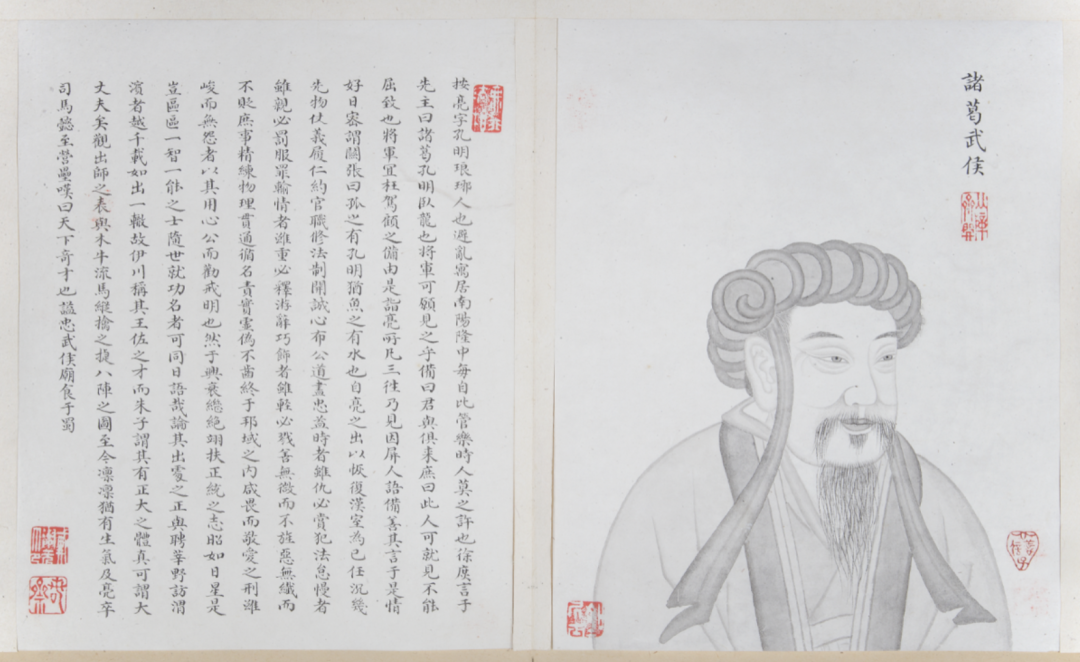 諸葛武侯
按亮字孔明琅瑯人也避亂寓居南陽隆中每自比管樂時人莫之許也徐庶言于
先主曰諸葛孔明臥龍也將軍可願見之乎備曰君與俱来庶曰此人可就見不能
屈致也將軍宜枉駕顧之備由是詣亮所凡三往乃見因屏人語備善其言于是情
好日密謂關張曰孤之有孔明猶魚之有水也自亮之出以恢復漢室為己任沉幾
先物仗義履仁約官職修法制開誠心布公道盡忠益時者雖仇必賞犯法怠慢者
雖親必罰服罪輸情者雖重必釋游辭巧飾者雖輕必戮善無微而不旌惡無纖而
不貶庶事精練物理貫通循名責實虛偽不齒終于邦域之內咸畏而敬愛之刑雖
峻而無怨者以其用心公而勸戒明也然于興衰繼絕翊扶正統之志昭如日星是
豈區區一智一能之士隨世就功名者可同日語哉論其出處之正與聘莘野訪渭
濱者越千載如出一轍故伊川稱其王佐之才而朱子謂其有正大之體真可謂大
丈夫矣觀出師之表與木牛流馬縱擒之捷八陣之圖至今凛凛猶有生氣及亮卒
司馬懿至營壘嘆曰天下奇才也諡忠武侯廟食于蜀